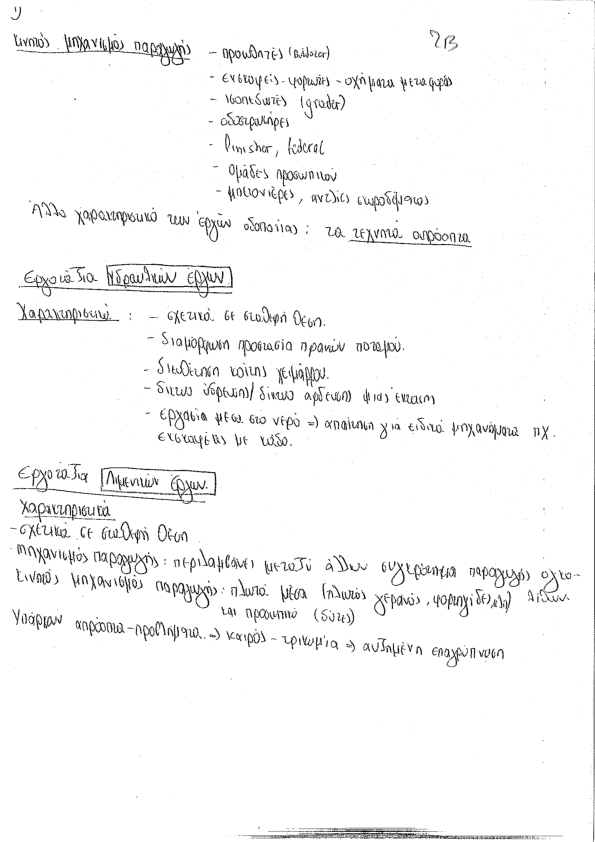 1)
2B
Κινητός μηχανισμός παραγωγής - προωθητές (Buldozer)
- εκσκαφείς - φορτωτές - οχήματα μεταφοράς
- ισοπεδωτές (grader)
- οδοστρωτήρες
- Finisher, federal
- ομάδες προσωπικού
- μπετονιέρες, αντλίες σκυροδέματος
Άλλο χαρακτηριστικό των έργων οδοποιίας : τα τεχνικά απρόοπτα
Εργοτάξια Υδραυλικών έργων
Χαρακτηριστικά : - σχετικά σε σταθερή θέση.
- διαμόρφωση προστασία πρανών ποταμού.
- διευθέτηση κοίτης χειμάρρου.
- δίκτυο ύδρευσης/ δίκτυο άρδευσης μιας έκτασης
- εργασία μέσα στο νερό => απαίτηση για ειδικά μηχανήματα πχ.
εκσκαφέας με κάδο.
Εργοτάξια Λιμενικών έργων.
Χαρακτηριστικά
- σχετικά σε σταθερή θέση
- Μηχανισμός παραγωγής : περιλαμβάνει μεταξύ άλλων συγκρότημα παραγωγής ογκο-
λίθων
Κινητός μηχανισμός παραγωγής : πλωτά μέσα (πλωτός γερανός, φορτηγίδες, κλπ)
και προσωπικό (δύτες)
Υπάρχουν απρόοπτα - προβλήματα => καιρός - τρικυμία => αυξημένη επαγρύπνηση